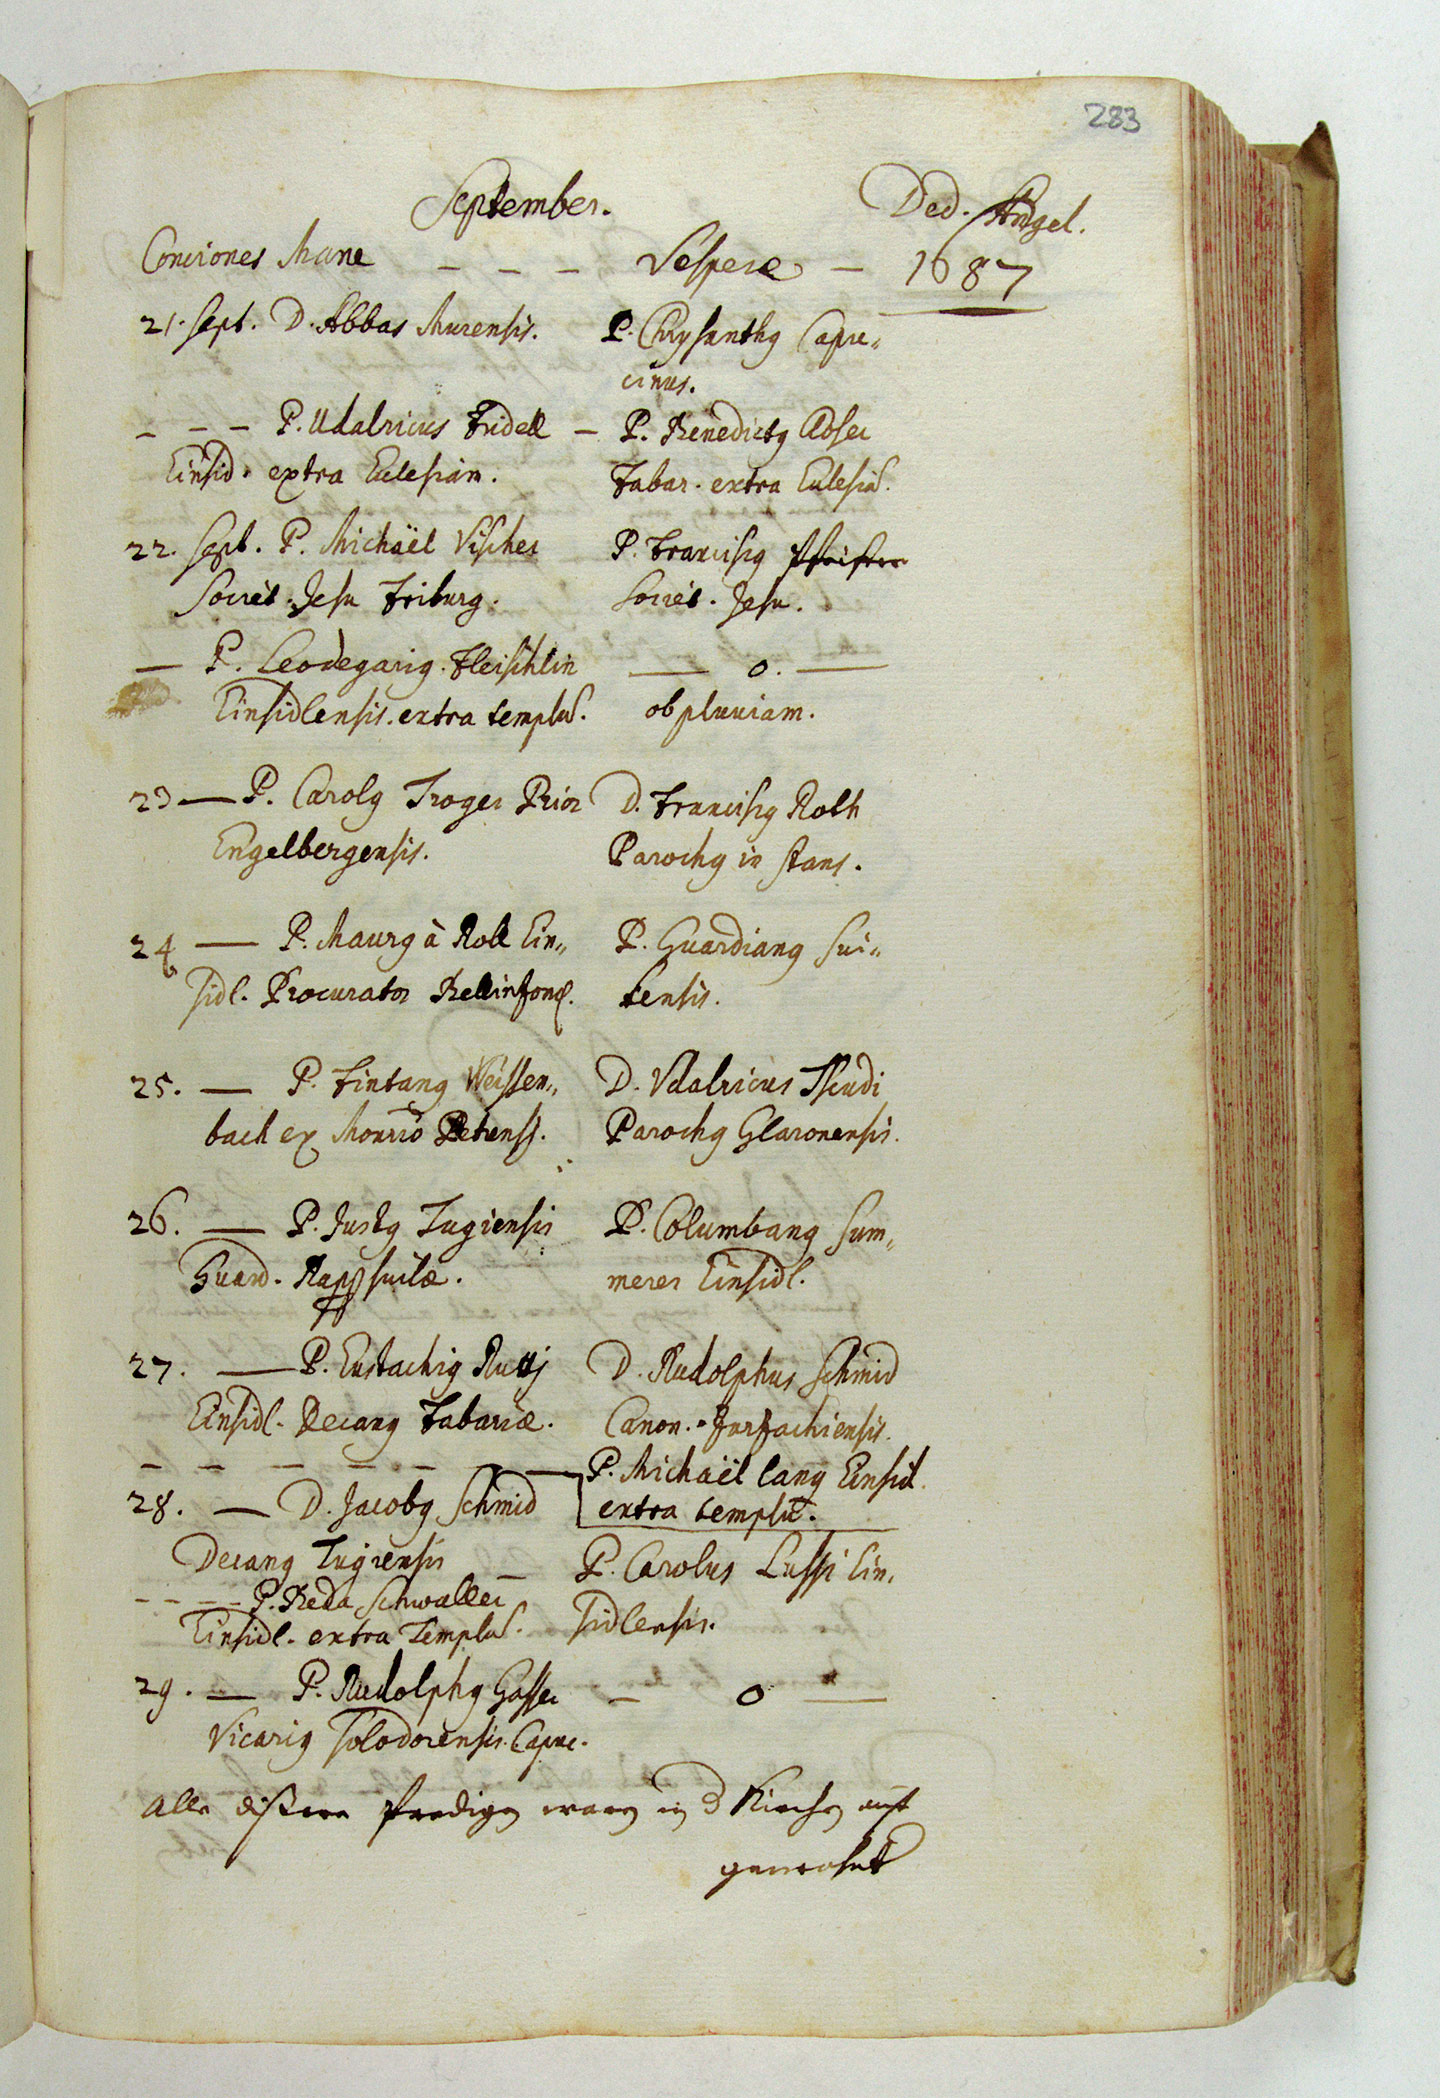 283
September. Ded. Angel.
Conciones Mane - - - Vesperæ - 1687
21. Sept. D. Abbas Murensis.
P. Chrysanthg Capu-
cinus.
- - - P. Udalricus Fridell -
Einsid. extra Ecclesiam.
P. Benedictg
Fabar. extra Ecclesiā.
22. Sept. P. Michaël Vischer
Societ. Jesu Friburg.
P. Franciscg Pfeiffer
Societ. Jesu.
— P. Leodegarig. Fleischlin
Einsidlensis. extra templū.
— o. —
ob pluuiam.
23 — P. Carolg Troger Prior
Engelbergensis.
D. Franciscg Roth
Parochg in Stans.
24 — P. Maurg à Roll Ein-
sidl. Procurator Bellinzonę.
P. Guardiang Sui-
tensis.
25. — P. Fintang Weissen-
bach ex Monrio
D. Vdalricus Tscudi
Parochg Glaronensis.
26. — P. Justg Tugiensis
Guard. Rappsuilæ.
P. Columbang Sum-
merer Einsidl.
27. — P. Eustachig Ruttj
Einsidl. Decang Fabariæ.
D. Rudolphus Schmid
Canon. Zurzachiensis.
- - - - - - —
P. Michaël lang Einsid.
extra templū.
28. — D. Jacobg Schmid
Decang Tugiensis -
P. Carolus Lussi Ein-
sidlensis.
- - - - P. Beda Schwaller
Einsidl. extra Templū.
29. — P. Rudolphg Gasser
Vicarig Solodorensis. Capuc.
- o —
Alle Predigen waren in d Kirchen